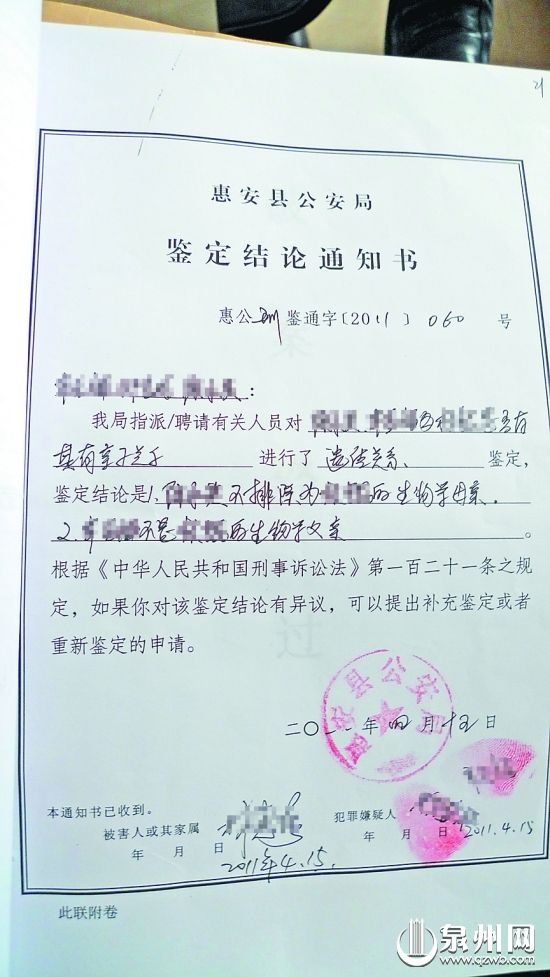 21
惠安县公安局
鉴定结论通知书
惠公刑鉴通字〔2011〕060 号
：
我局指派/聘请有关人员对 否有
具有亲子关系 进行了 遗传关系 鉴定，
鉴定结论是1. 不排除为 的生物学母亲。
2. 不是 的生物学父亲 。
根据《中华人民共和国刑事诉讼法》第一百二十一条之规
定，如果你对该鉴定结论有异议，可以提出补充鉴定或者
重新鉴定的申请。
惠安县公安局
二〇一一年四月十五日
本通知书已收到。
被害人或其家属
年 月 日
2011年4.15.
犯罪嫌疑人
年 月 日
2011.4.15
此联附卷
泉州网
www.qzwb.com